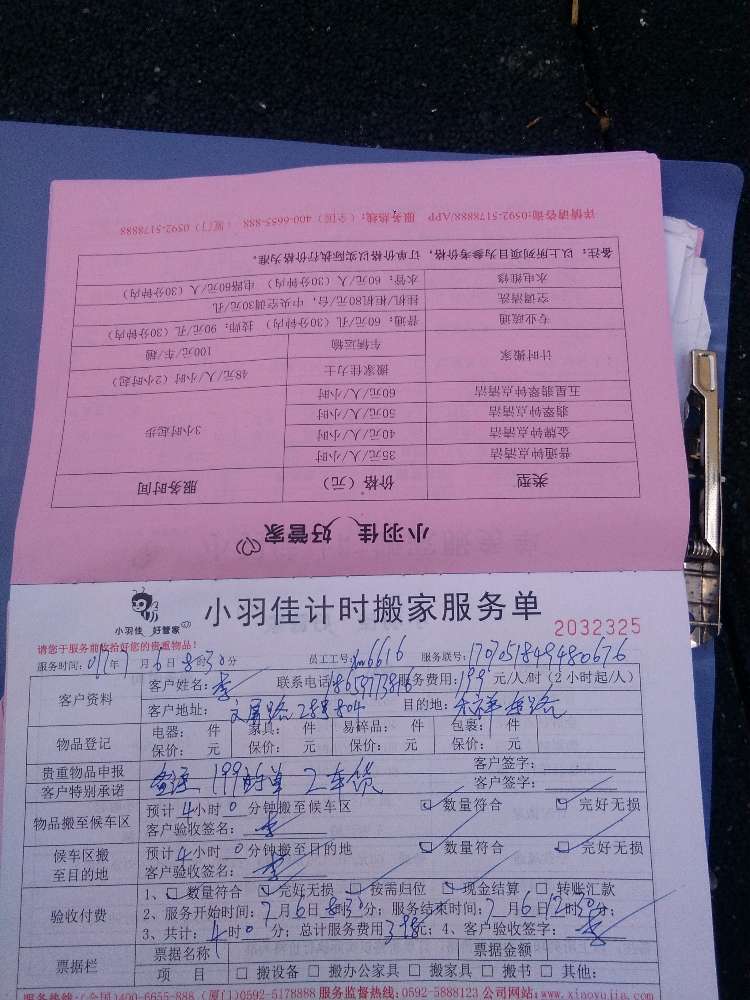 小羽佳 好管家
类型 价格（元） 服务时间
普通钟点清洁 35元/人/小时 3小时起步
金牌钟点清洁 40元/人/小时
翡翠钟点清洁 50元/人/小时
五星翡翠钟点清洁 60元/人/小时
计时搬家 搬家佳力士 48元/人/小时（2小时起）
车辆运输 100元/车/趟
专业疏通 普通：60元/孔（30分钟内） 技师：90元/孔（30分钟内）
空调清洗 挂机/柜机80元/台，中央空调30元/孔
水电维修 水管：60元/人（30分钟内） 电路60元/人（30分钟内）
备注：以上所列项目为参考价格，价格以实际执行订单价格为准。
详情请咨询:0592-5178888/APP 服务热线：（全国）400-6655-888 （厦门）0592-5178888
小羽佳 好管家
小羽佳计时搬家服务单
2032325
请您于服务前收拾好您的贵重物品！
服务时间： 年7月6日8时30分 员工工号： 6616 服务联号：
客户资料 客户姓名：李 联系电话 服务费用：199元/人/时（2小时起/人）
客户地址： 目的地：
物品登记 电器： 件 家具： 件 易碎品： 件 包裹： 件
保价： 元 保价： 元 保价： 元 保价： 元
贵重物品申报 客户签字：
客户特别承诺 199 2车货 客户签字：
物品搬至候车区 预计4小时0分钟搬至候车区 数量符合 完好无损
客户验收签名：李
候车区搬至目的地 预计4小时0分钟搬至目的地 数量符合 完好无损
客户验收签名：李
验收付费 1、数量符合 完好无损 按需归位 现金结算 转账汇款
2、服务开始时间：7月6日8时30分；服务结束时间：7月6日12时30分；
3、共计：4时0分；总计服务费用398元；4、客户验收签字：李
票据栏 票据名称 票据金额
项 目 搬设备 搬办公家具 搬家具 搬书 其他：
服务热线：（全国）400-6655-888 （厦门）0592-5178888 服务监督热线：0592-5888123 公司网站：www.xiaoyujia.com